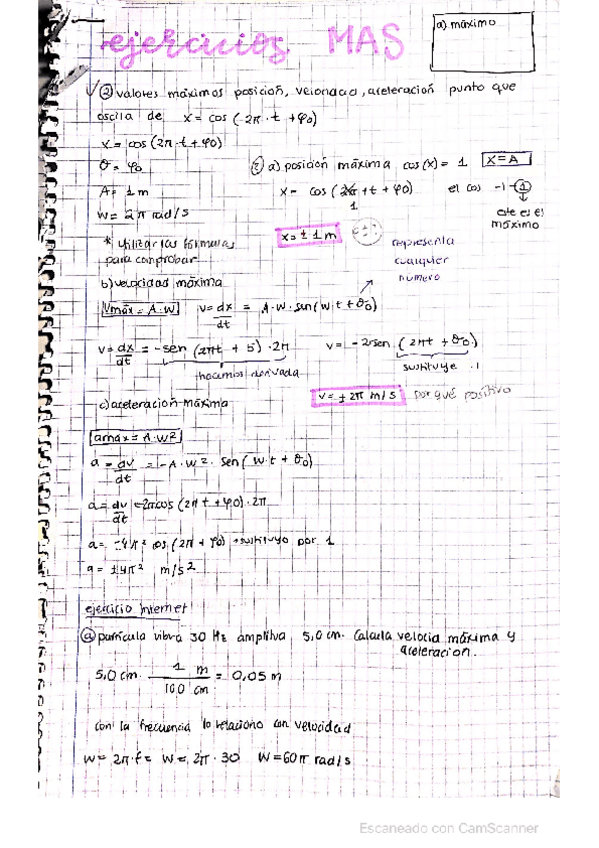 a) máximo
ejercicios MAS
② valores máximos posición, velocidad, aceleración punto que
oscila de x = cos (2π · t + φ0)
x = cos (2π · t + φ0)
θ = φ0
A = 1 m
W = 2π rad/s
* utilizar las fórmulas
para comprobar
② a) posición máxima cos(x) = 1 x = A
x = cos (2π + t + φ0) el cos -1 - 1
1
este es el
máximo
x = ± 1 m
representa
cualquier
número
b) velocidad máxima
Vmáx = A·W v = dx/dt = A·W·sen(W·t + θ0)
v = dx/dt = -sen (2πt + 5) · 2π v = -2πsen (2πt + θ0)
hacemos derivada
sustituye · 1
v = ± 2π m/s por qué positivo
c) aceleración máxima
amax = A·W²
a = dv/dt = -A·W²· sen (W·t + θ0)
a = dv/dt -2πcos (2πt + φ0) · 2π
a = -4π² cos (2π + φ0) → sustituyo por 1
a = ±4π² m/s²
ejercicio internet
ⓐ partícula vibra 30 Hz amplitud, 5,0 cm. Calcula velocia máxima y
aceleracion.
5,0 cm · 1 m/100 cm = 0,05 m
con la frecuencia lo relaciono con velocidad
W = 2π·f = W = 2π · 30 W = 60π rad/s
Escaneado con CamScanner